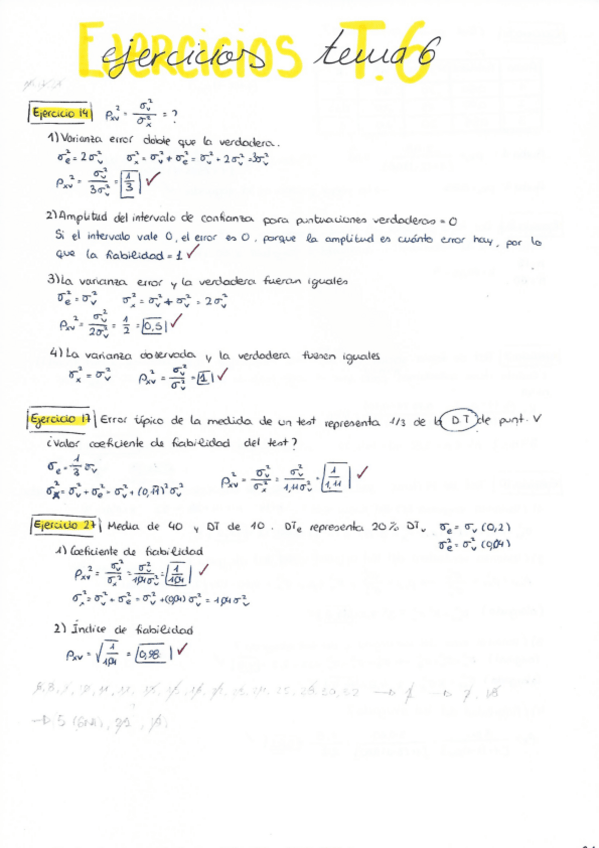 EJERCICIOS T.6
ejercicios tema 6
Ejercicio 14 ρxv² = σv²/σx² = ?
1) Varianza error doble que la verdadera.
σe² = 2σv² σx² = σv² + σe² = σv² + 2σv² = 3σv²
ρxv² = σv²/3σv² = 1/3 ✓
2) Amplitud del intervalo de confianza para puntuaciones verdaderas = 0
Si el intervalo vale 0, el error es 0, porque la amplitud es cuánto error hay, por lo
que la fiabilidad = 1 ✓
3) La varianza error y la verdadera fueran iguales
σe² = σv² σx² = σv² + σv² = 2σv²
ρxv² = σv²/2σv² = 1/2 = 0,5 ✓
4) La varianza observada y la verdadera fuesen iguales
σx² = σv² ρxv² = σv²/σv² = 1 ✓
Ejercicio 17 Error típico de la medida de un test representa 1/3 de la DT de punt. V
¿Valor coeficiente de fiabilidad del test?
σe = 1/3 σv
ρxv² = σv²/σx² = σv²/1,11σv² = 1/1,11 ✓
Ejercicio 27 Media de 40 y DT de 10. DTe representa 20% DTv σe = σv (0,2)
σe² = σv² (0,04)
1) Coeficiente de fiabilidad
ρxv² = σv²/σx² = σv²/1,04σv² = 1/1,04 ✓
σx² = σv² + σe² = σv² + (0,04) σv² = 1,04σv²
2) Índice de fiabilidad
ρxv = √1/1,04 = 0,98 ✓